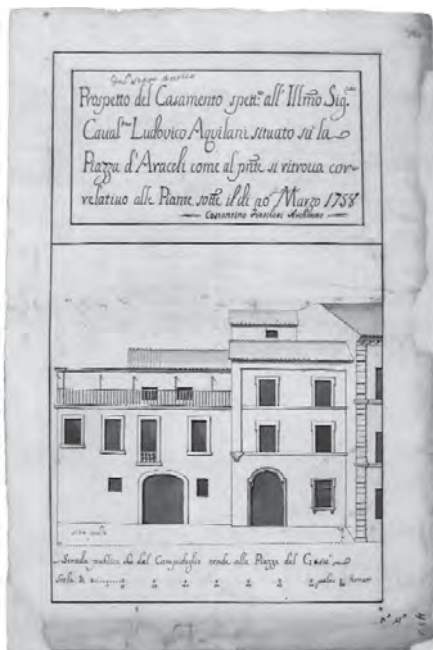 Prospetto del Casamento spett.e all' Illmo Sig.
Caual.re Ludovico Aquilani situato sù la
Piazza d'Araceli come al pnte si ritroua cor-
relatiuo alle Piante sotto il di 20 Marzo 1758
Costantino Architetto
Strada publica che dal Campidoglio tende alla Piazza del Giesù
Scala di palmi Romani